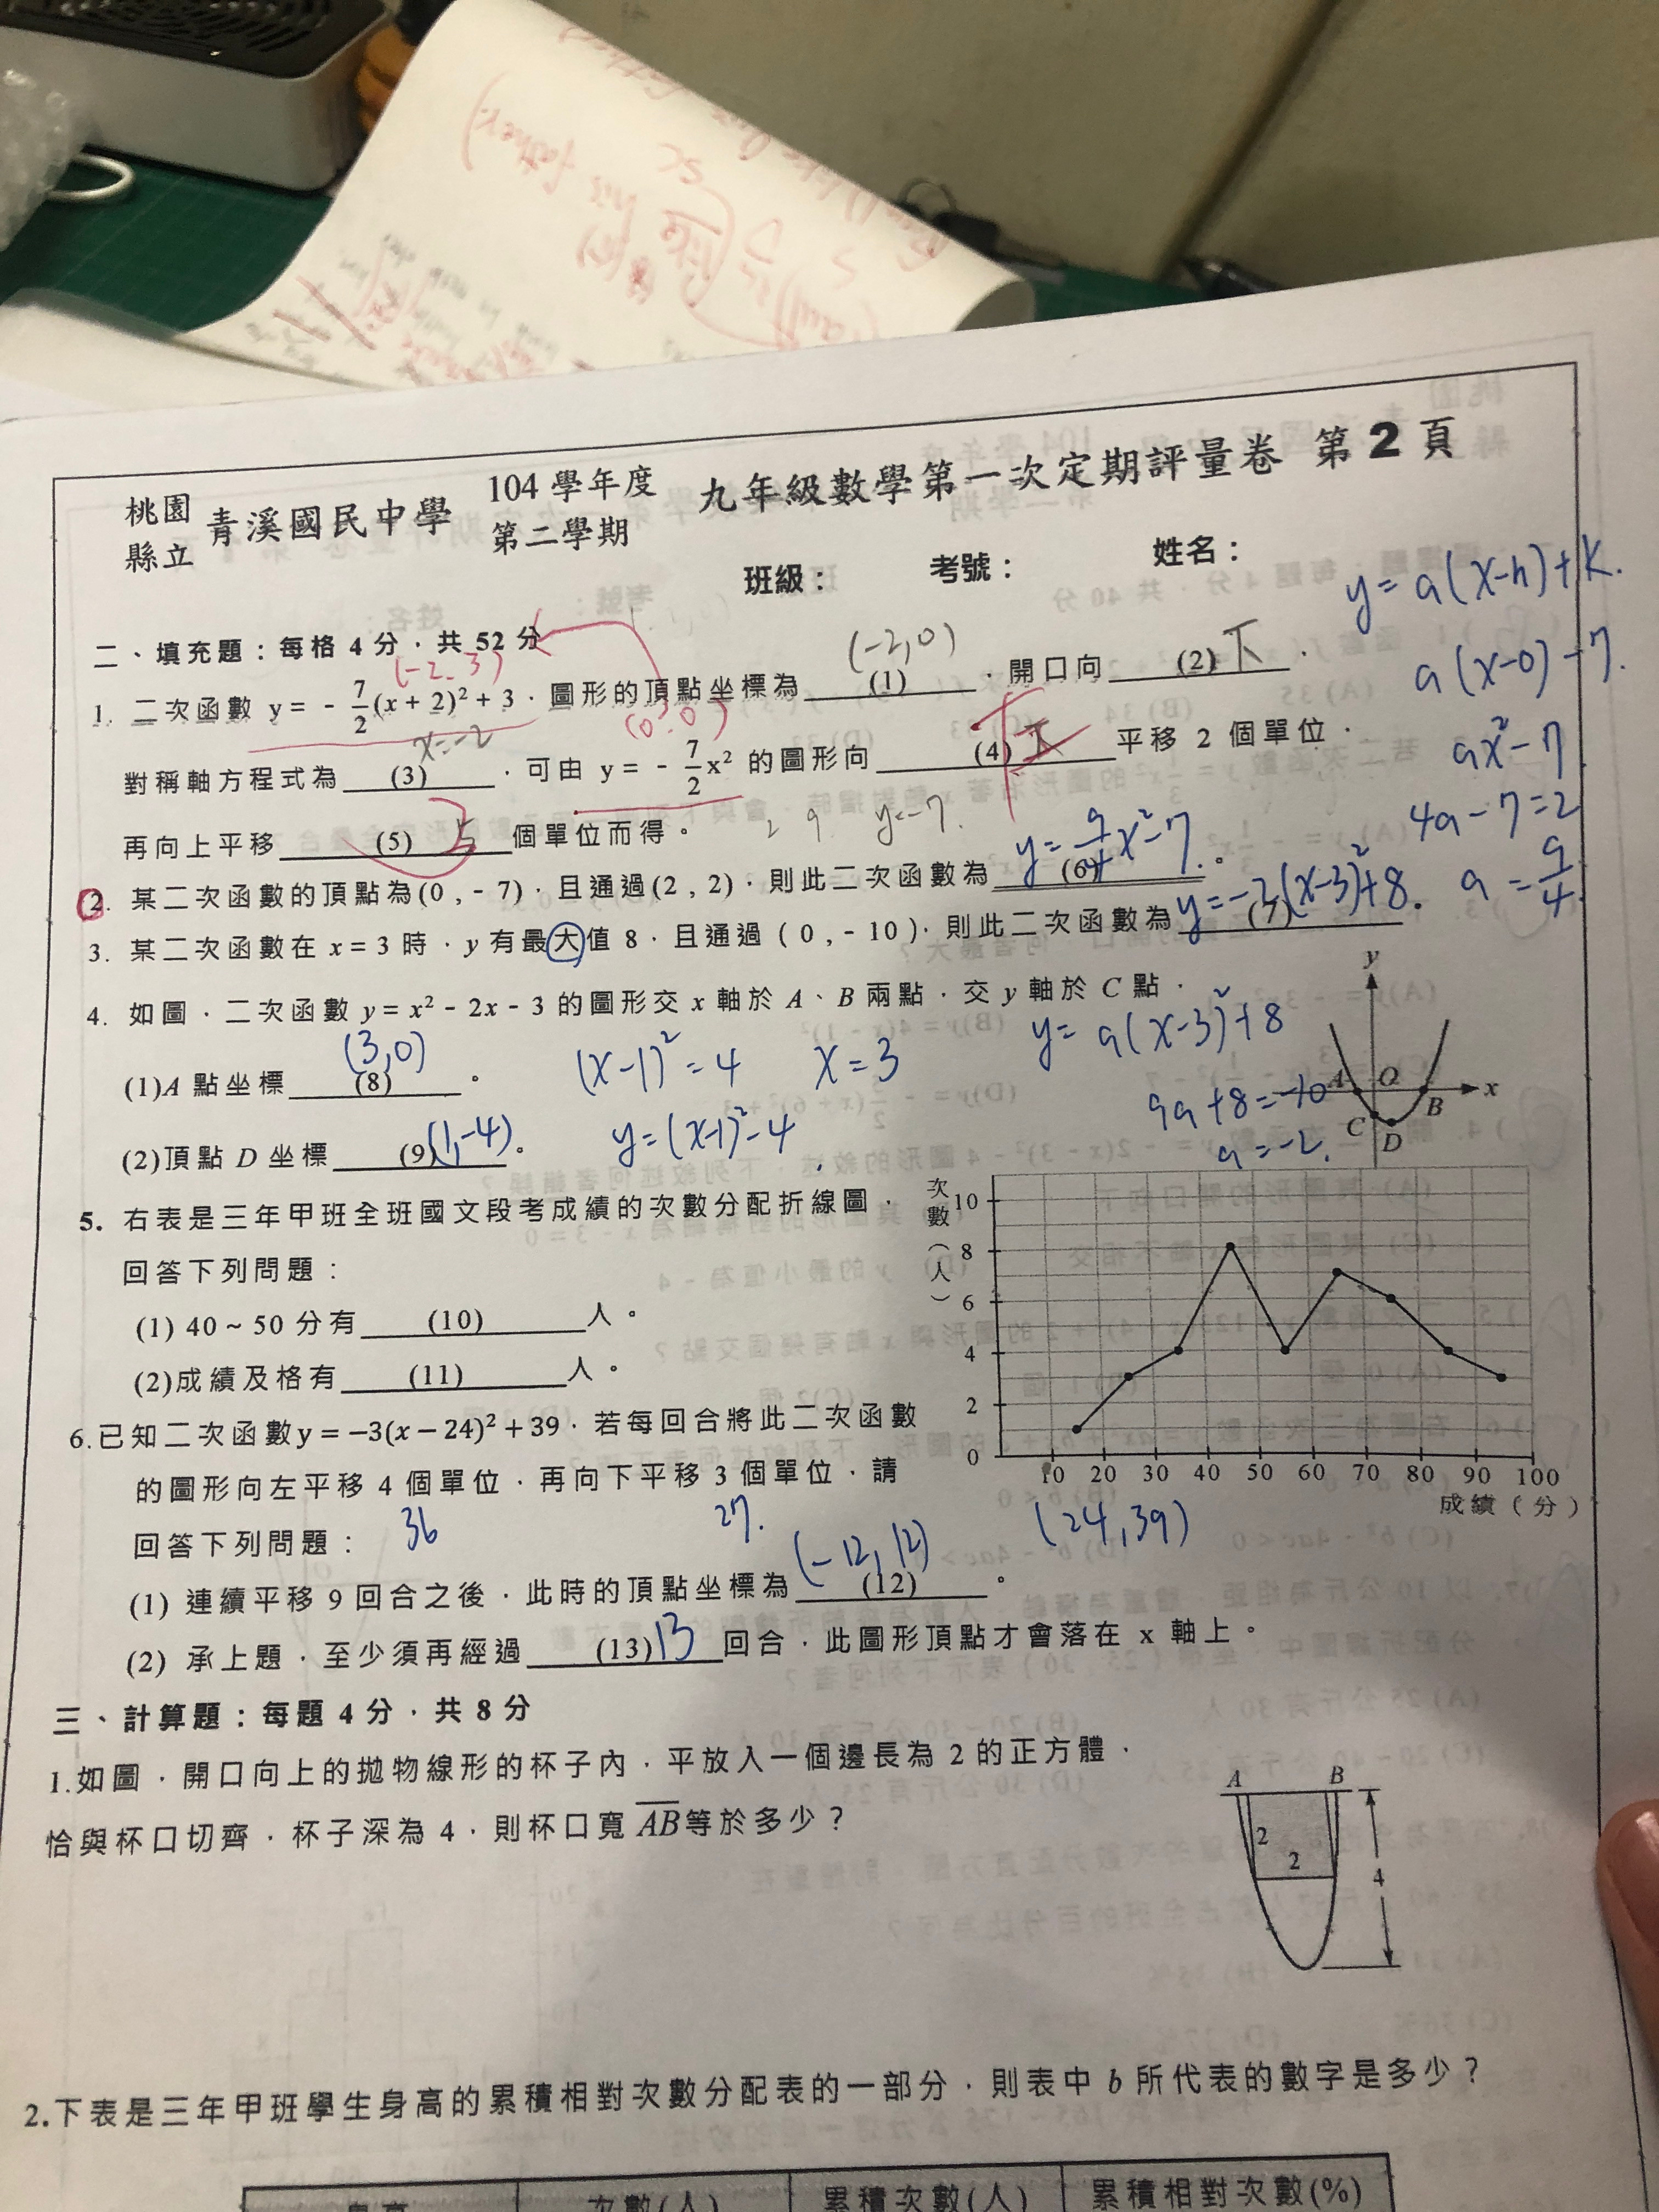 桃園縣立 青溪國民中學 104 學年度 第二學期 九年級數學第一次定期評量卷 第 2 頁
班級： 考號： 姓名：
y = a(x-h)+k.
二、填充題：每格 4 分，共 52 分
(-2, 3)
(-2,0)
a(x-0)-7.
1. 二次函數 y = - 7/2 (x + 2)² + 3，圖形的頂點坐標為 (1)，開口向 (2) 下，
x=-2
(0, 0)
ax²-7
對稱軸方程式為 (3)，可由 y = - 7/2 x² 的圖形向 (4) 平移 2 個單位，
4a-7=2
再向上平移 (5) 5 個單位而得。
2 9 y=-7.
a = 9/4
2. 某二次函數的頂點為(0 , - 7)，且通過(2 , 2)，則此二次函數為 (6) y=9/4x²-7.。
3. 某二次函數在 x = 3 時，y 有最大值 8，且通過 ( 0 , - 10 )，則此二次函數為 (7) y=-2(x-3)²+8.
4. 如圖，二次函數 y = x² - 2x - 3 的圖形交 x 軸於 A、B 兩點，交 y 軸於 C 點，
y = a(x-3)²+8
(1)A 點坐標 (8) (3,0)。
(x-1)²=4 x=3
9a+8=-10
a=-2.
(2)頂點 D 坐標 (9) (1,-4).。
y=(x-1)²-4.
y
A O B x
C D
5. 右表是三年甲班全班國文段考成績的次數分配折線圖，
回答下列問題：
(1) 40 ~ 50 分有 (10) 人。
(2)成績及格有 (11) 人。
次數（人）
10
8
6
4
2
0
10 20 30 40 50 60 70 80 90 100
成績（分）
6.已知二次函數y = −3(x − 24)² + 39，若每回合將此二次函數
的圖形向左平移 4 個單位，再向下平移 3 個單位，請
回答下列問題：
36 27. (24,39)
(1) 連續平移 9 回合之後，此時的頂點坐標為 (12) (-12,12)。
(2) 承上題，至少須再經過 (13) 13 回合，此圖形頂點才會落在 x 軸上。
三、計算題：每題 4 分，共 8 分
1.如圖，開口向上的拋物線形的杯子內，平放入一個邊長為 2 的正方體，
恰與杯口切齊，杯子深為 4，則杯口寬 AB 等於多少？
A B
2
2
4
2.下表是三年甲班學生身高的累積相對次數分配表的一部分，則表中 b 所代表的數字是多少？
身高 次數(人) 累積次數(人) 累積相對次數(%)